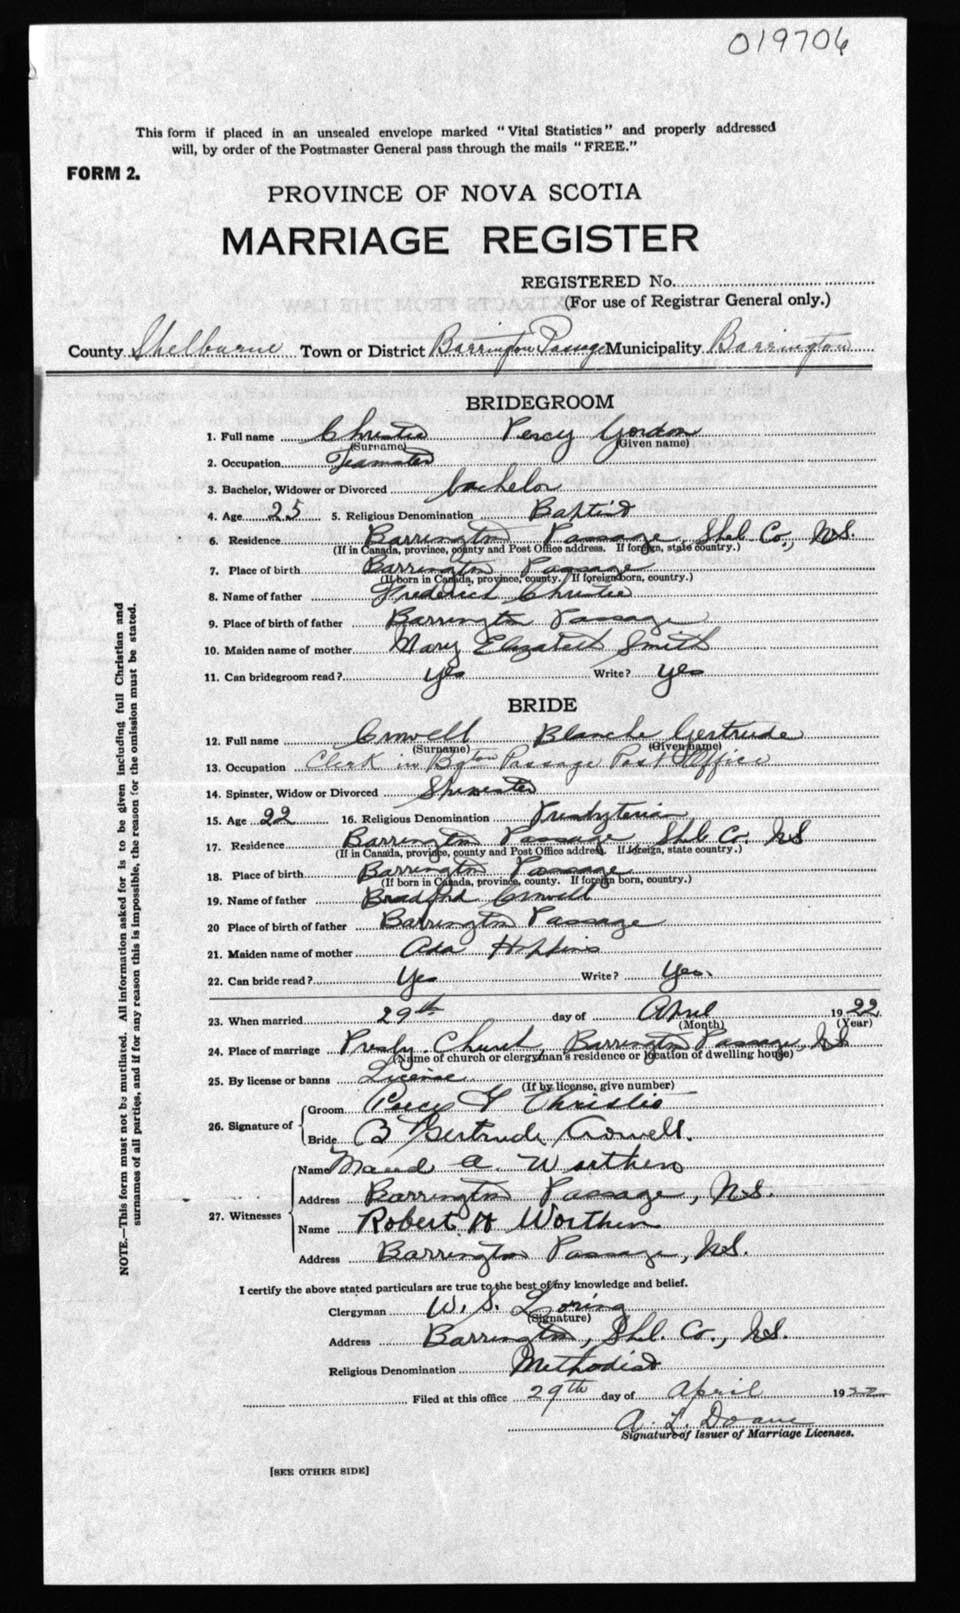 019706
This form if placed in an unsealed envelope marked "Vital Statistics" and properly addressed
will, by order of the Postmaster General pass through the mails "FREE."
FORM 2.
PROVINCE OF NOVA SCOTIA
MARRIAGE REGISTER
REGISTERED No.
(For use of Registrar General only.)
County Shelburne Town or District Barrington Passage Municipality Barrington
BRIDEGROOM
1. Full name Christie Percy Gordon
(Surname) (Given name)
2. Occupation Teamster
3. Bachelor, Widower or Divorced bachelor
4. Age 25 5. Religious Denomination Baptist
6. Residence Barrington Passage, Shel Co., N.S.
(If in Canada, province, county and Post Office address. If foreign, state country.)
7. Place of birth Barrington Passage
(If born in Canada, province, county. If foreign born, country.)
8. Name of father Frederick Christie
9. Place of birth of father Barrington Passage
10. Maiden name of mother Mary Elizabeth Smith
11. Can bridegroom read? yes Write? yes
BRIDE
12. Full name Crowell Blanche Gertrude
(Surname) (Given name)
13. Occupation Clerk in Bgton Passage Post Office
14. Spinster, Widow or Divorced Spinster
15. Age 22 16. Religious Denomination Presbyterian
17. Residence Barrington Passage Shel Co. N.S
(If in Canada, province, county and Post Office address. If foreign, state country.)
18. Place of birth Barrington Passage
(If born in Canada, province, county. If foreign born, country.)
19. Name of father Bradford Crowell
20 Place of birth of father Barrington Passage
21. Maiden name of mother Ada Hopkins
22. Can bride read? Yes Write? Yes.
23. When married 29th day of April 1922
(Month) (Year)
24. Place of marriage Presby. Church, Barrington Passage, N.S
(Name of church or clergyman's residence or location of dwelling house)
25. By license or banns License
(If by license, give number)
26. Signature of Groom Percy G Christie
Bride B Gertrude Crowell.
27. Witnesses Name Maud A. Worthen
Address Barrington Passage, N.S.
Name Robert H Worthen
Address Barrington Passage, N.S.
I certify the above stated particulars are true to the best of my knowledge and belief.
Clergyman W. S. Loring
(Signature)
Address Barrington, Shel. Co., N.S.
Religious Denomination Methodist
Filed at this office 29th day of April 1922
A. L. Doane
Signature of Issuer of Marriage Licenses.
[SEE OTHER SIDE]
NOTE.—This form must not be mutilated. All information asked for is to be given including full Christian and
surnames of all parties, and if for any reason this is impossible, the reason for the omission must be stated.